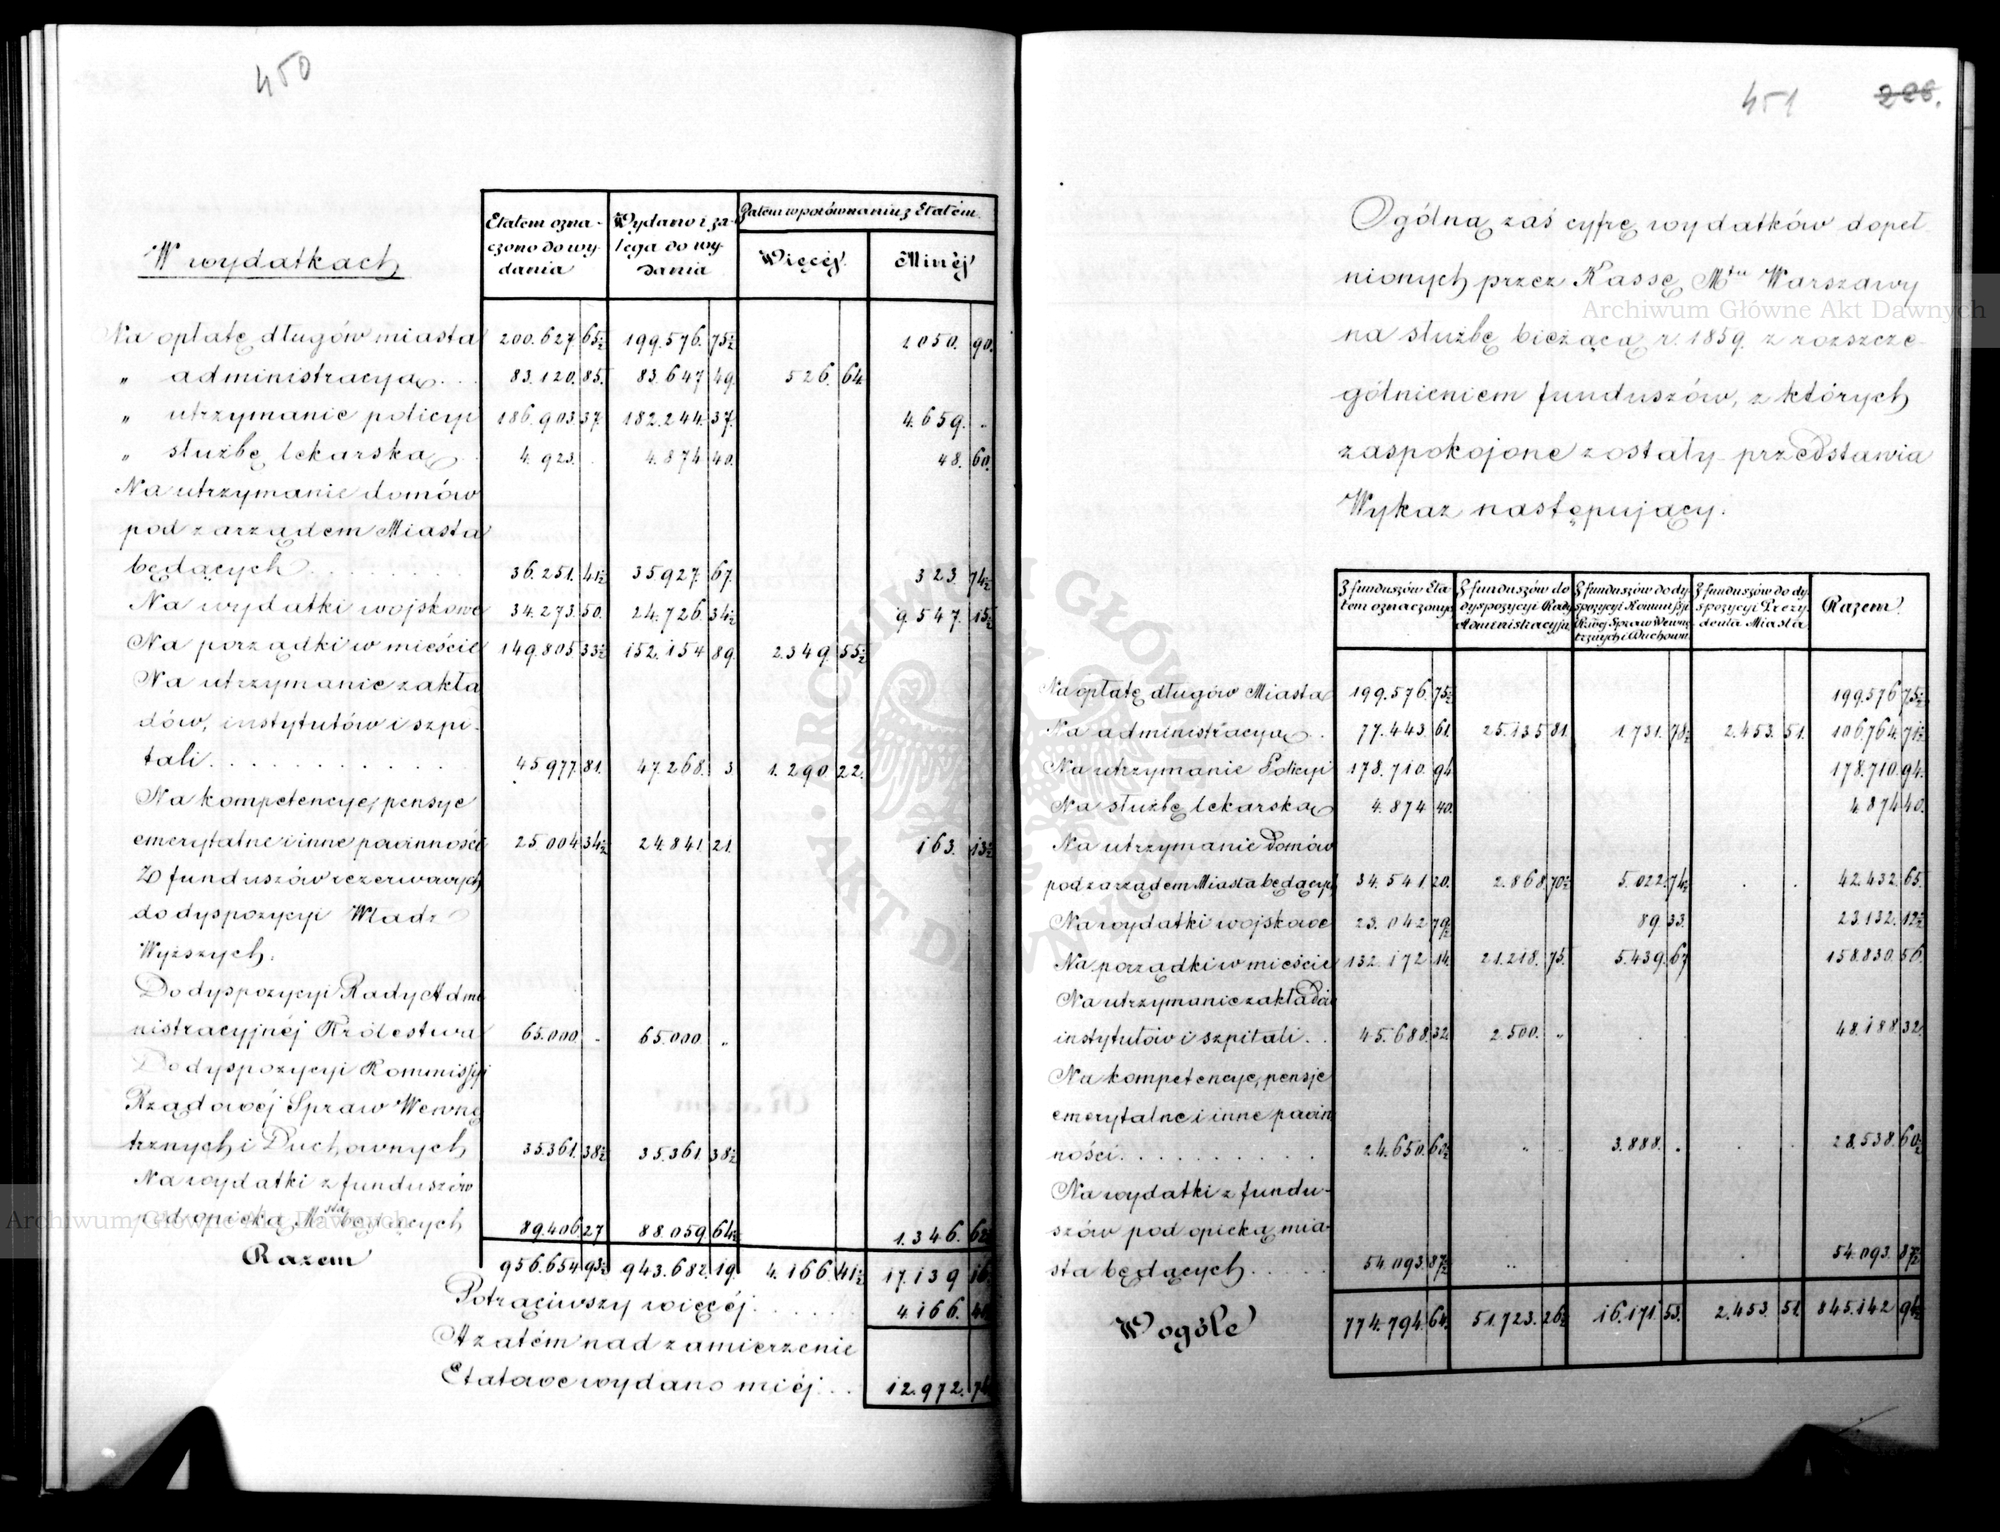 450
W wydatkach
Etatem ozna-
czono do wy-
dania
Wydano i za-
lega do wy-
dania
Zatem w porównaniu z Etatem.
Więcéj.
Mniéj
Na opłatę długów miasta 200.627. 65½ 199.576. 75½ 1050. 90.
„ administracyą . . 83.120. 85. 83.647 49. 526. 64
„ utrzymanie policyi 186.903 37. 182.244. 37. 4.659. „
„ służbę lekarską . 4.923. . 4.874 40. 48. 60.
Na utrzymanie domów
pod zarządem Miasta
będących . . . . . . . . 36.251. 41½ 35.927. 67. 323. 74½
Na wydatki wojskowe 34.273. 50. 24.726. 34½ 9.547. 15½
Na porządki w mieście 149.805 33½ 152.154 89. 2.349. 55½
Na utrzymanie zakła
dów, instytutów i szpi-
tali . . . . . . . . . . . 45.977. 81. 47.268. 3 1.290 22.
Na kompetencye, pensye
emerytalne i inne powinności 25.004 34½ 24.841 21. 163. 13½
Z funduszów rezerwowych
do dyspozycyi Władz
Wyższych.
Do dyspozycyi Rady Admi
nistracyjnéj Królestwa 65.000 „ 65.000 „
Do dyspozycyi Kommissyi
Rządowéj Spraw Wewnę
trznych i Duchownych 35.361. 38½ 35.361 38½
Na wydatki z funduszów
pod opieką Msta będących 89.406 27 88.059 64½ 1.346. 62½
Razem 956.654 93½ 943.682. 19. 4.166 41½ 17.139 16
Potrąciwszy więcéj . . . . . . 4.166. 41
A zatém nad zamierzenie
Etatowe wydano mniéj . . . 12.972. 74
451 226.
Ogólną zaś cyfrę wydatków dopeł-
nionych przez Kassę Mta Warszawy
na służbę bieżącą r. 1859. z rozszcze-
gólnieniem funduszów, z których
zaspokojone zostały przedstawia
Wykaz następujący.
Z funduszów Eta
tem oznaczonych
Z funduszów do
dyspozycyi Rady
Administracyjnéj
Z funduszów do dy
spozycyi Kommissyi
Rząd: Spraw Wewnę
trznych i Duchown:
Z funduszów do dy
spozycyi Prezy
denta Miasta
Razem.
Na opłatę długów Miasta 199.576. 75½ 199.576 75½
Na administracyą . . 77.443. 61. 25.135 81. 1.731. 78½ 2.453. 51. 106.764. 71½
Na utrzymanie Policyi 178.710. 94 178.710. 94.
Na służbę lekarską 4.874 40. 4.874 40.
Na utrzymanie domów
pod zarządem Miasta będących 34.541. 20. 2.868. 70½ 5.022. 74½ . . 42.432. 65.
Na wydatki wojskowe 23.042 79½ 89 33. 23.132. 12½
Na porządki w mieście 132.172 14. 21.218. 75. 5.439. 67 158.830. 56.
Na utrzymanie zakładów
instytutów i szpitali . . 45.688. 32. 2.500. „ . . 48.188. 32.
Na kompetencye, pensje
emerytalne i inne powin
ności . . . . . . . . . . 24.650. 60½ „ . 3.888. „ . . 28.538. 60½
Na wydatki z fundu-
szów pod opieką mia-
sta będących . . . . 54.093. 87½ „ . 54.093. 87½
W ogóle 774.794. 64. 51.723. 26½ 16.171. 53. 2.453. 51. 845.142 94½
Archiwum Główne Akt Dawnych
Archiwum Główne Akt Dawnych
ARCHIWUM GŁÓWNE AKT DAWNYCH